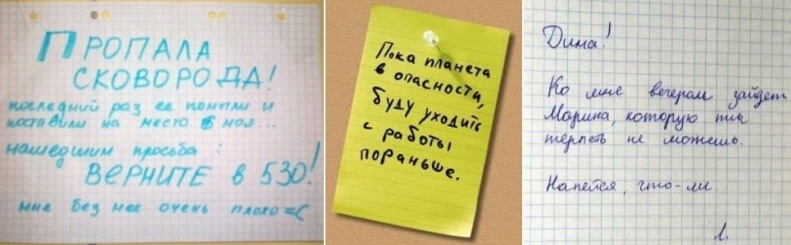 ПРОПАЛА
СКОВОРОДА!
последний раз ее помыли и
поставили на место 6 мая...
нашедшим просьба:
ВЕРНИТЕ в 530!
мне без нее очень плохо =(
Пока планета
в опасности,
буду уходить
с работы
пораньше.
Дима!
Ко мне вечером зайдет
Марина, которую ты
терпеть не можешь.
Напейся, что-ли.
Л.